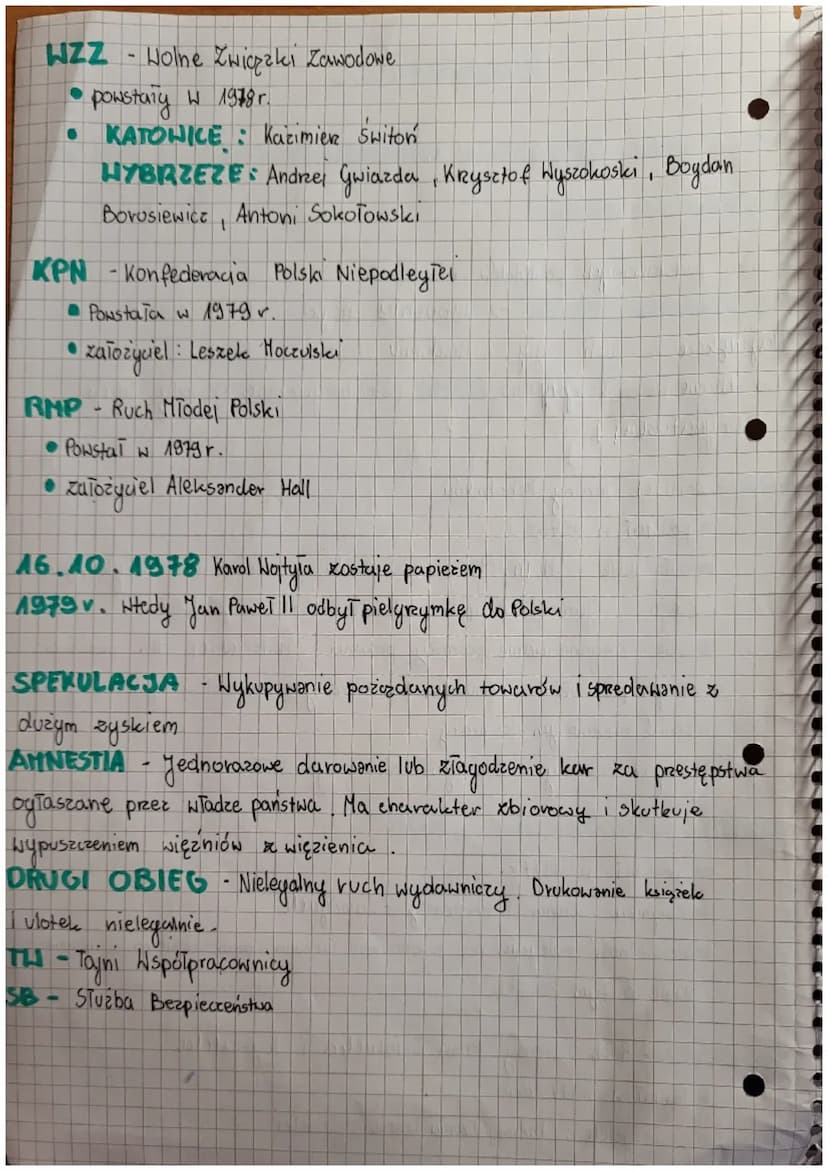 WZZ - Wolne Związki Zawodowe
• powstały w 1978r.
• KATOWICE : Kazimierz Świtoń
WYBRZEŻE : Andrzej Gwiazda , Krzysztof Wyszokoski , Bogdan
Borosiewicz , Antoni Sokołowski
KPN - Konfederacja Polski Niepodległej
• Powstała w 1979 r.
• założyciel : Leszek Moczulski
RMP - Ruch Młodej Polski
• Powstał w 1979r.
• założyciel Aleksander Hall
16.10.1978 Karol Wojtyła zostaje papieżem
1979 r. Wtedy Jan Paweł II odbył pielgrzymkę do Polski
SPEKULACJA - Wykupywanie pożądanych towarów i spredawanie z
dużym zyskiem
AMNESTIA - Jednorazowe darowanie lub złagodzenie kar za przestępstwa
ogłaszane przez władze państwa. Ma charakter zbiorowy i skutkuje
wypuszczeniem więźniów z więzienia .
DRUGI OBIEG - Nielegalny ruch wydawniczy. Drukowanie książek
i ulotek nielegalnie.
TW - Tajni Współpracownicy
SB - Służba Bezpieczeństwa